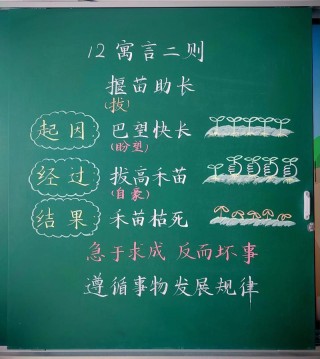 12 寓言二则
揠苗助长
(拔)
起因 巴望快长
(盼望)
经过 拔高禾苗
(自豪)
结果 禾苗枯死
急于求成 反而坏事
遵循事物发展规律